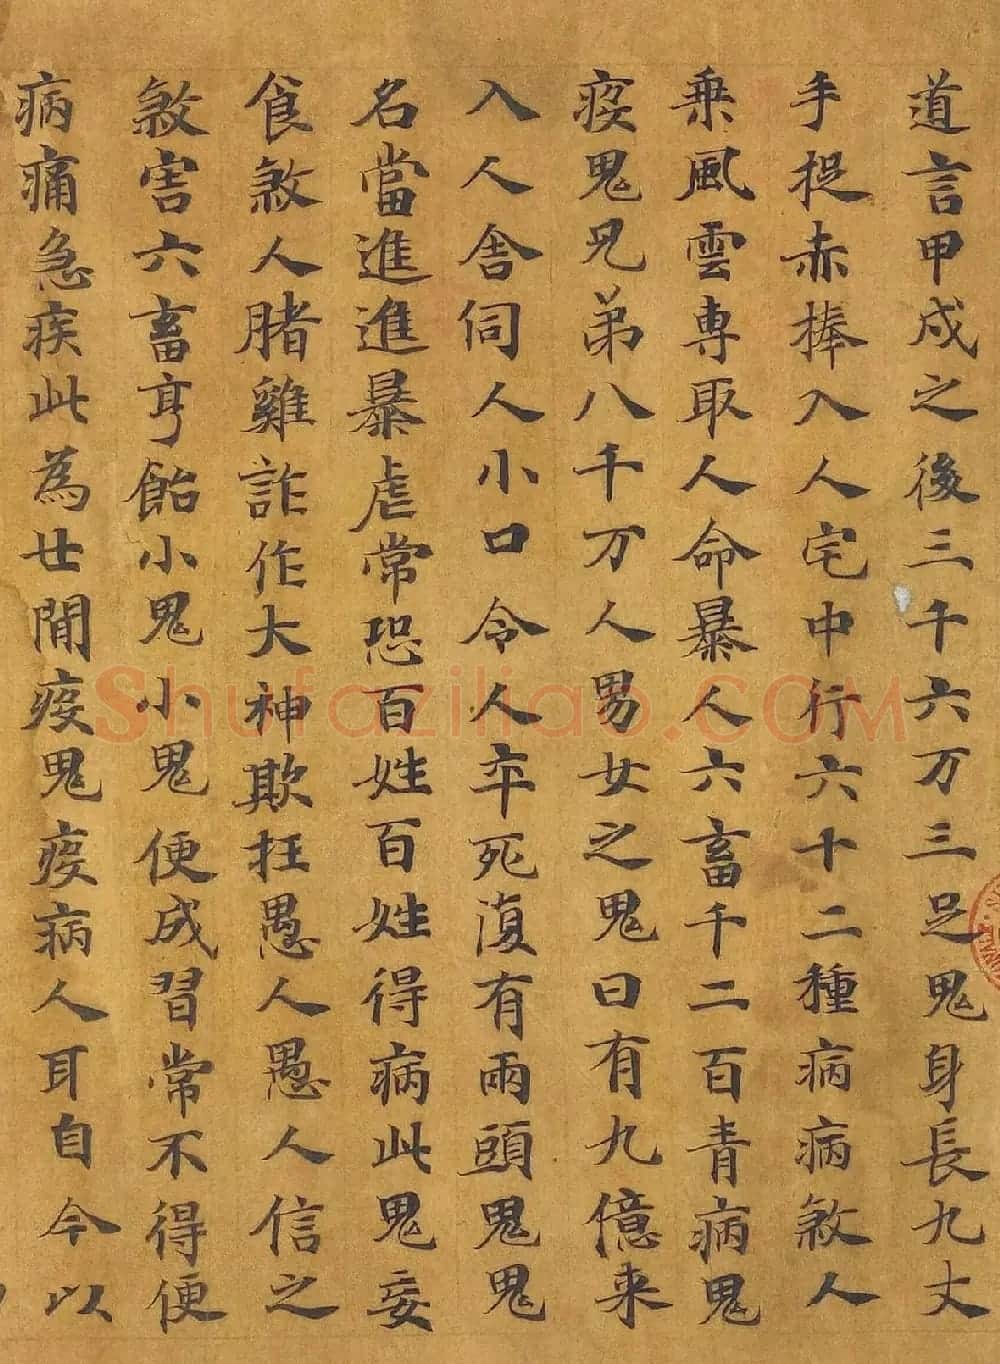 道言甲戌之後三千六万三足鬼身長九丈
手捉赤棒入人宅中行六十二種病病煞人
乗風雲専取人命暴人六畜千二百青病鬼
疫鬼兄弟八千万人男女之鬼日有九億来
入人舍伺人小口令人卒死復有兩頭鬼鬼
名當進進暴虐常恐百姓百姓得病此鬼妄
食煞人豬雞詐作大神欺抂愚人愚人信之
煞害六畜亨飴小鬼小鬼便成習常不得便
病痛急疾此為世閒疫鬼疫病人耳自今以
Shufaziliao.COM